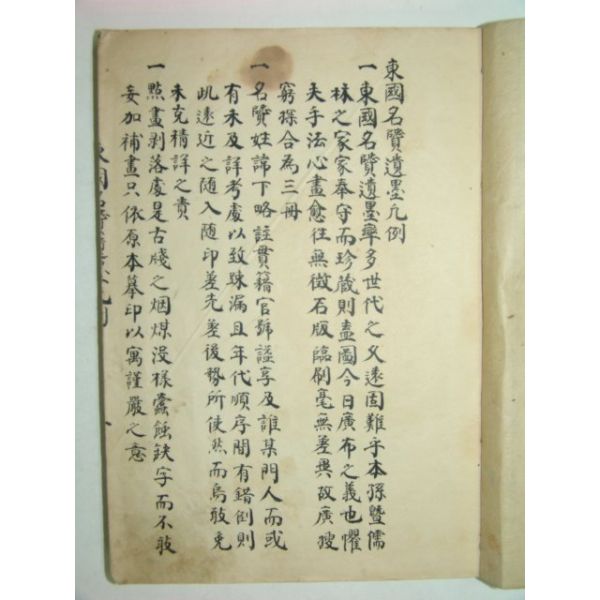 東國名賢遺墨凡例
一東國名賢遺墨率多世代之久遠固難乎本孫曁儒
林之家家奉守而珍藏則盍圖今日廣布之義也懼
夫手法心畫愈往無徵石版臨刷毫無差異故廣搜
窮探合為三冊
一名賢姓諱下略註貫籍官號諡享及誰某門人而或
有未及詳考處以致踈漏且年代順序間有錯倒則
此遠近之随入随印差先差後勢所使然而烏敢免
未克精詳之責
一點畫剥落處是古牋之烟煤沒樣蠹蝕缺字而不敢
妄加補畫只依原本摹印以寓謹嚴之意